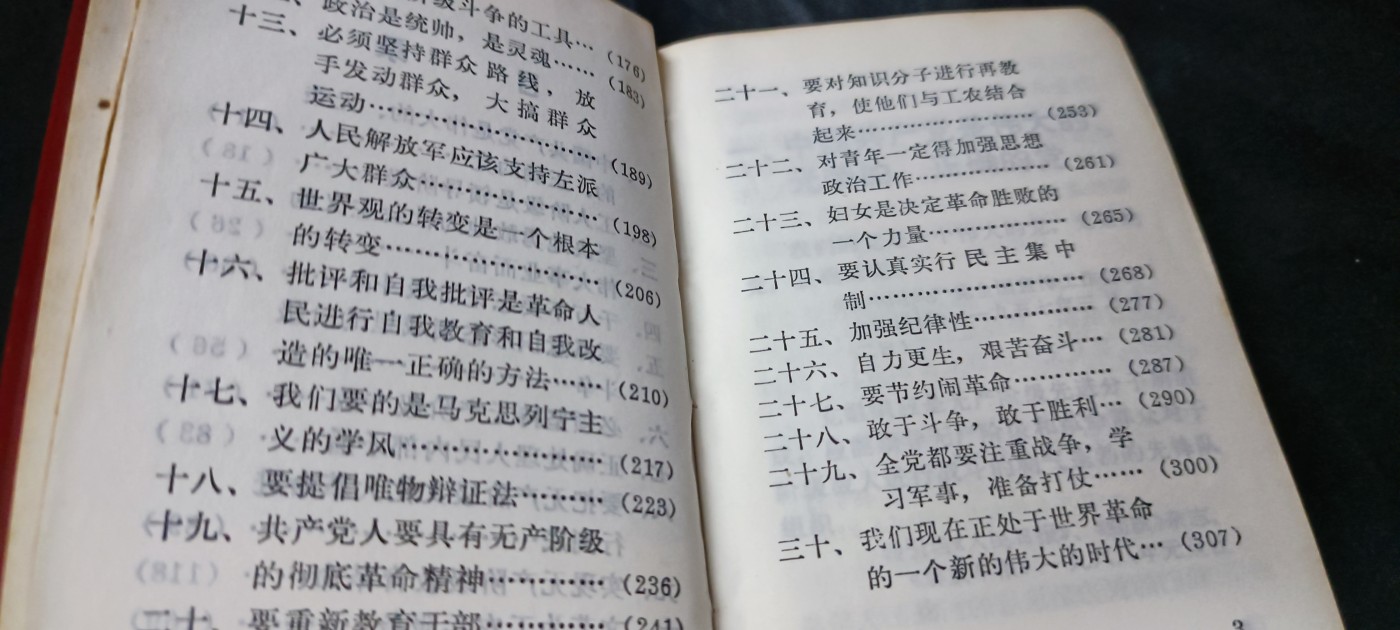 阶级斗争的工具…(176)
、政治是统帅，是灵魂……(183)
十三、必须坚持群众路线，放
手发动群众，大搞群众
运动……………………(189)
十四、人民解放军应该支持左派
广大群众………………(198)
十五、世界观的转变是一个根本
的转变…………………(206)
十六、批评和自我批评是革命人
民进行自我教育和自我改
造的唯一正确的方法……(210)
十七、我们要的是马克思列宁主
义的学风………………(217)
十八、要提倡唯物辩证法………(223)
十九、共产党人要具有无产阶级
的彻底革命精神…………(236)
二十、要重新教育干部…………(241)
二十一、要对知识分子进行再教
育，使他们与工农结合
起来……………………(253)
二十二、对青年一定得加强思想
政治工作………………(261)
二十三、妇女是决定革命胜败的
一个力量………………(265)
二十四、要认真实行民主集中
制………………………(268)
二十五、加强纪律性……………(277)
二十六、自力更生，艰苦奋斗…(281)
二十七、要节约闹革命…………(287)
二十八、敢于斗争，敢于胜利…(290)
二十九、全党都要注重战争，学
习军事，准备打仗……(300)
三十、我们现在正处于世界革命
的一个新的伟大的时代…(307)
3